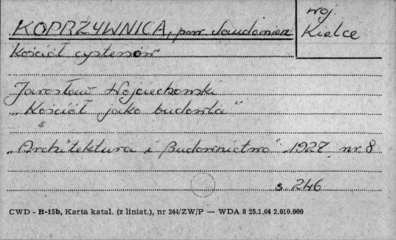 KOPRZYWNICA, pow. Sandomierz
woj
Kielce
Kościół cystersów
Jarosław Wojciechowski
„Kościół jako budowla"
„Architektura i Budownictwo" 1927 nr. 8
s. 246
CWD - B-15b, Karta katal. (z liniat.), nr 244/ZW/P — WDA 8 25.1.64 2.010.000